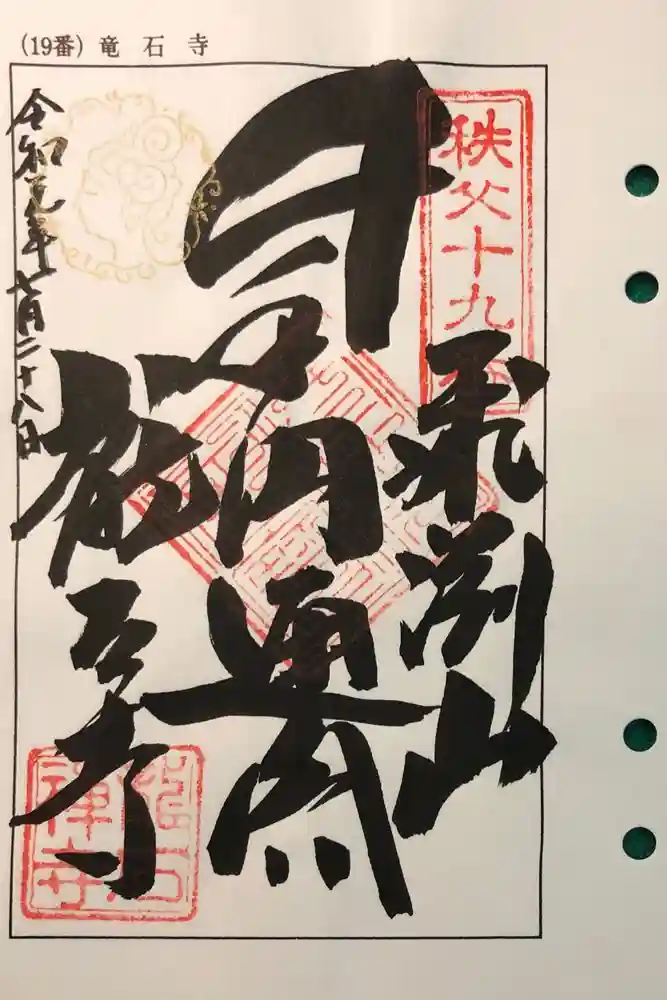 (19番) 竜石寺
秩父十九番
飛淵山
円通
龍石寺
令和元年七月二十八日
龍石禅寺